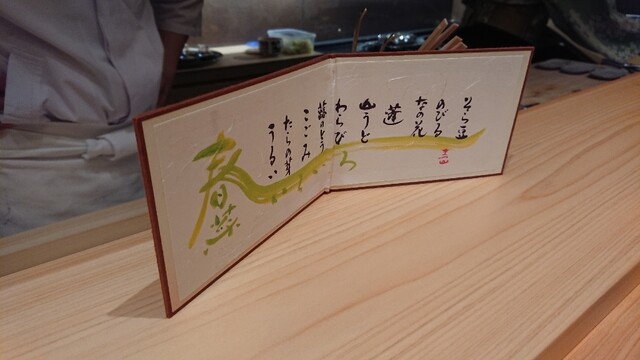 そら豆
のびる
なの花
蓬
山うど
わらび
蕗のとう
こごみ
たらの芽
うるい
春菜